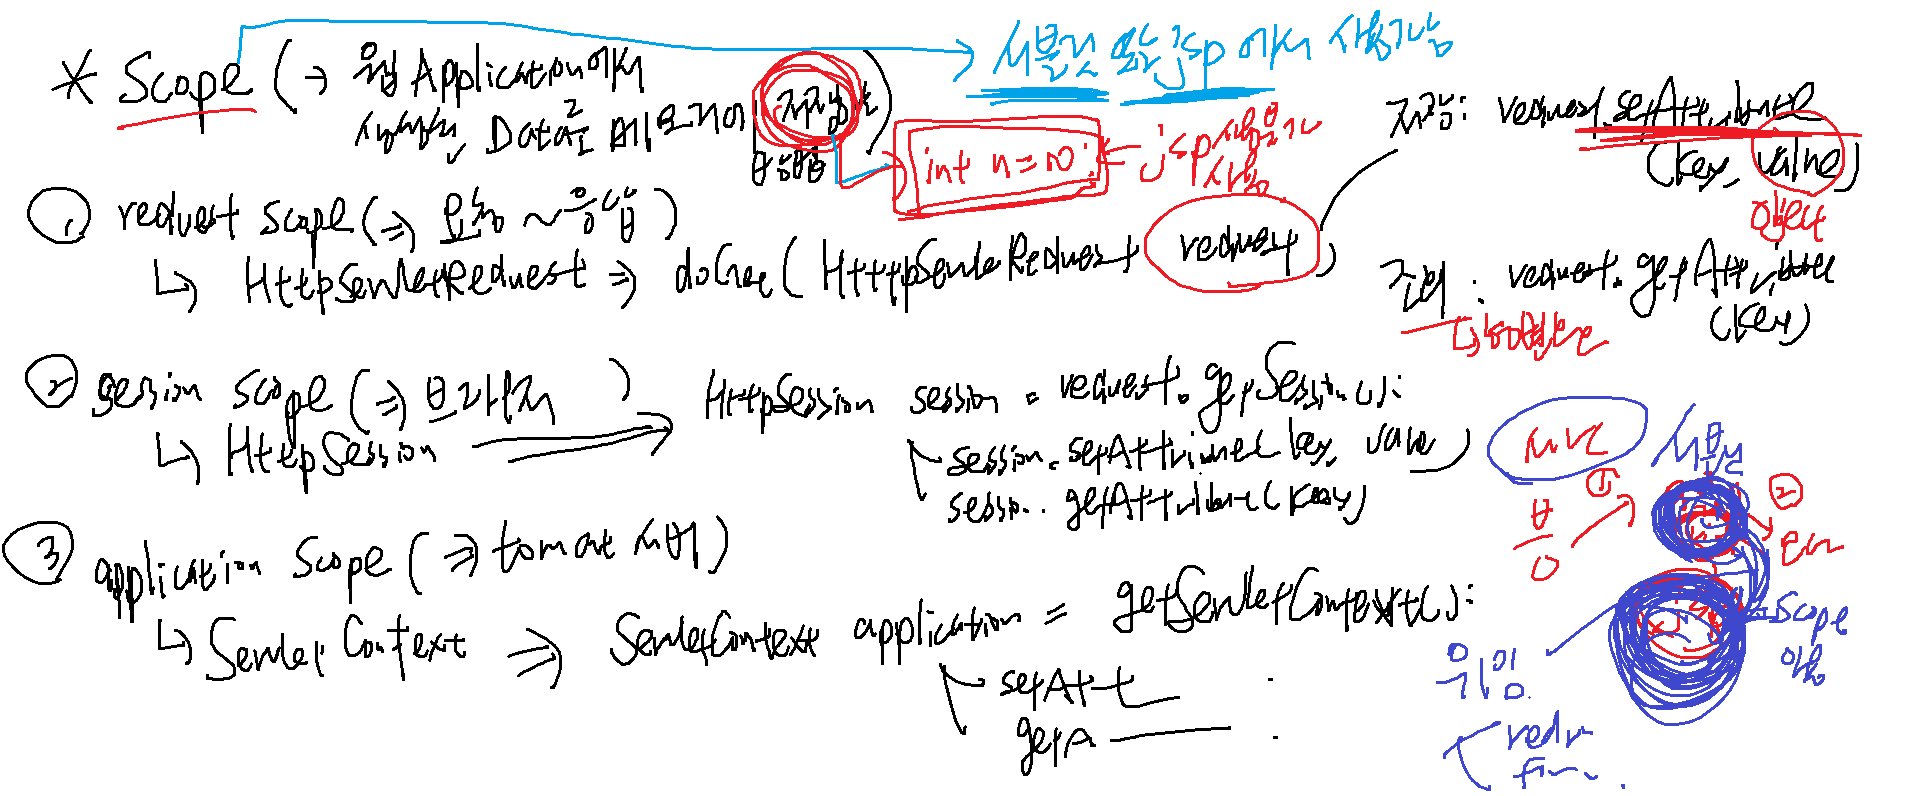 * Scope (→ 웹 Application에서
생성된, Data를 메모리에 저장하는
방법)
→ 서블릿 또는 jsp에서 사용가능
int n=10;
← jsp
저장: request.setAttribute
(key, value)
Object
① request scope (⇒ 요청 ~ 응답)
↳ HttpServletRequest ⇒ doGet( HttpServletRequest request )
조회 : request.getAttribute
(key)
② session scope (⇒ 브라우저 )
↳ HttpSession → HttpSession session = request.getSession();
session.setAttribute( key, value )
session.getAttribute(key)
③ application scope (⇒ tomcat 서버)
↳ ServletContext ⇒ ServletContext application = getServletContext();
setAtt
getA
서블릿
①
②
브
위임
Scope